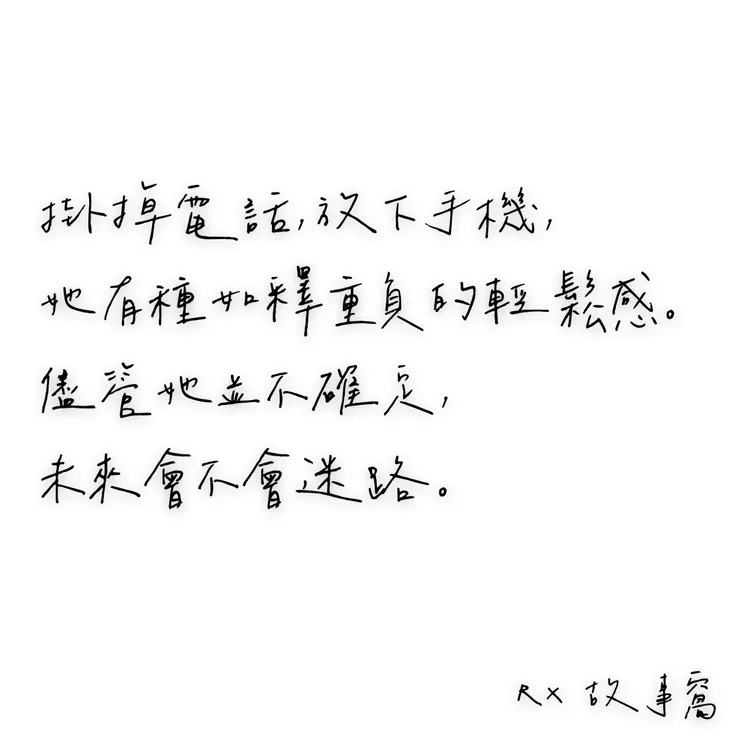 掛掉電話,放下手機,
她有種如釋重負的輕鬆感。
儘管她並不確定,
未來會不會迷路。
RX 故事窩